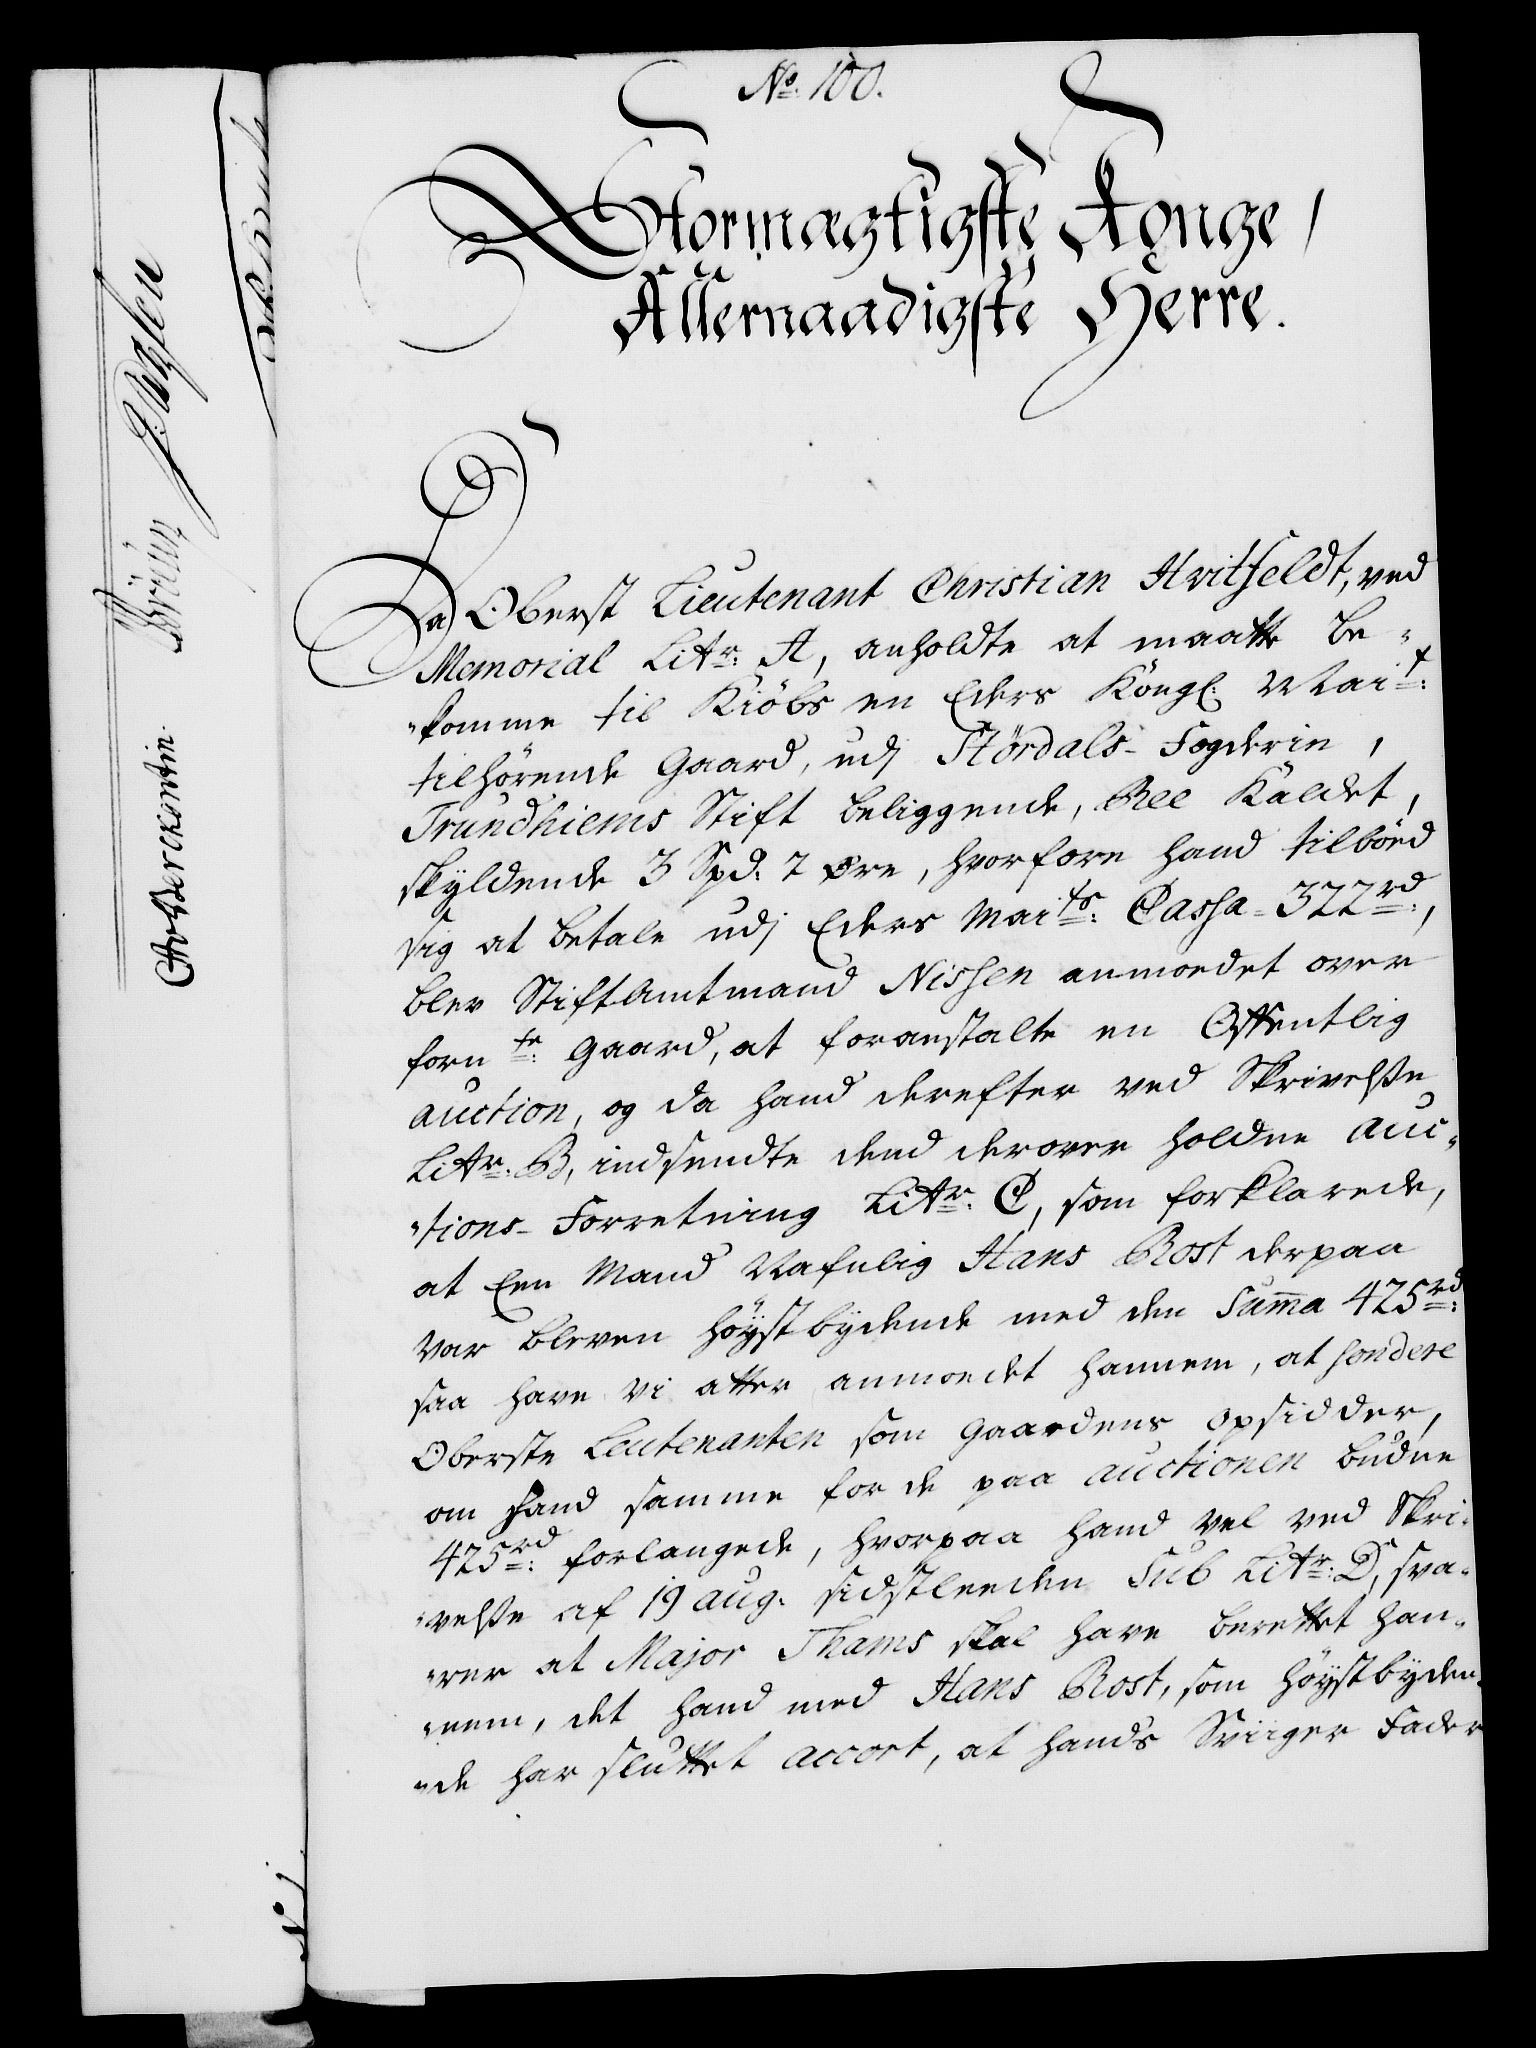 No. 100.
Stormægtigste Konge,
Allernaadigste Herre.
Da Oberst Lieutenant Christian Hvitfeldt, ved
Memorial Litr. A, anholdte at maatte be-
komme til Kiöbs en Eders Köngl. Mait:
tilhörende Gaard, udj Stördals-Fogderie,
Trundhiems Stift beliggende, Ree kaldet,
skyldende 3 Spd. 2 Øre, hvorfore hand tilböed
sig at betale udj Eders Maits: Cassa 322rd:,
blev StiftAmtmand Nissen anmodet over
fornte: Gaard, at foranstalte en Offentlig
auction, og da hand derefter ved Skrivelsse
Litr. B, indsendte dend derover holdne auc-
tions-Forretning Litr. C, som forklarede,
at Een Mand Nafnlig Hans Rost derpaa
var bleven höystbydende med den Summa 425rd:
saa have vi atter anmodet hannem, at sondere
Oberste Leutenanten som Gaardens opsidder,
om hand samme for de paa auctionen budne
425rd: forlangede, hvorpaa hand vel ved Skri-
velsse af 19 aug. sidstleeden Sub Litr: D, sva-
rer at Major Thams skal have berettet han-
nem, det hand med Hans Rost, som höystbyden-
de har sluttet accort, at hands Sviiger Fader
J. Wægsen
Brüün
Berckentin